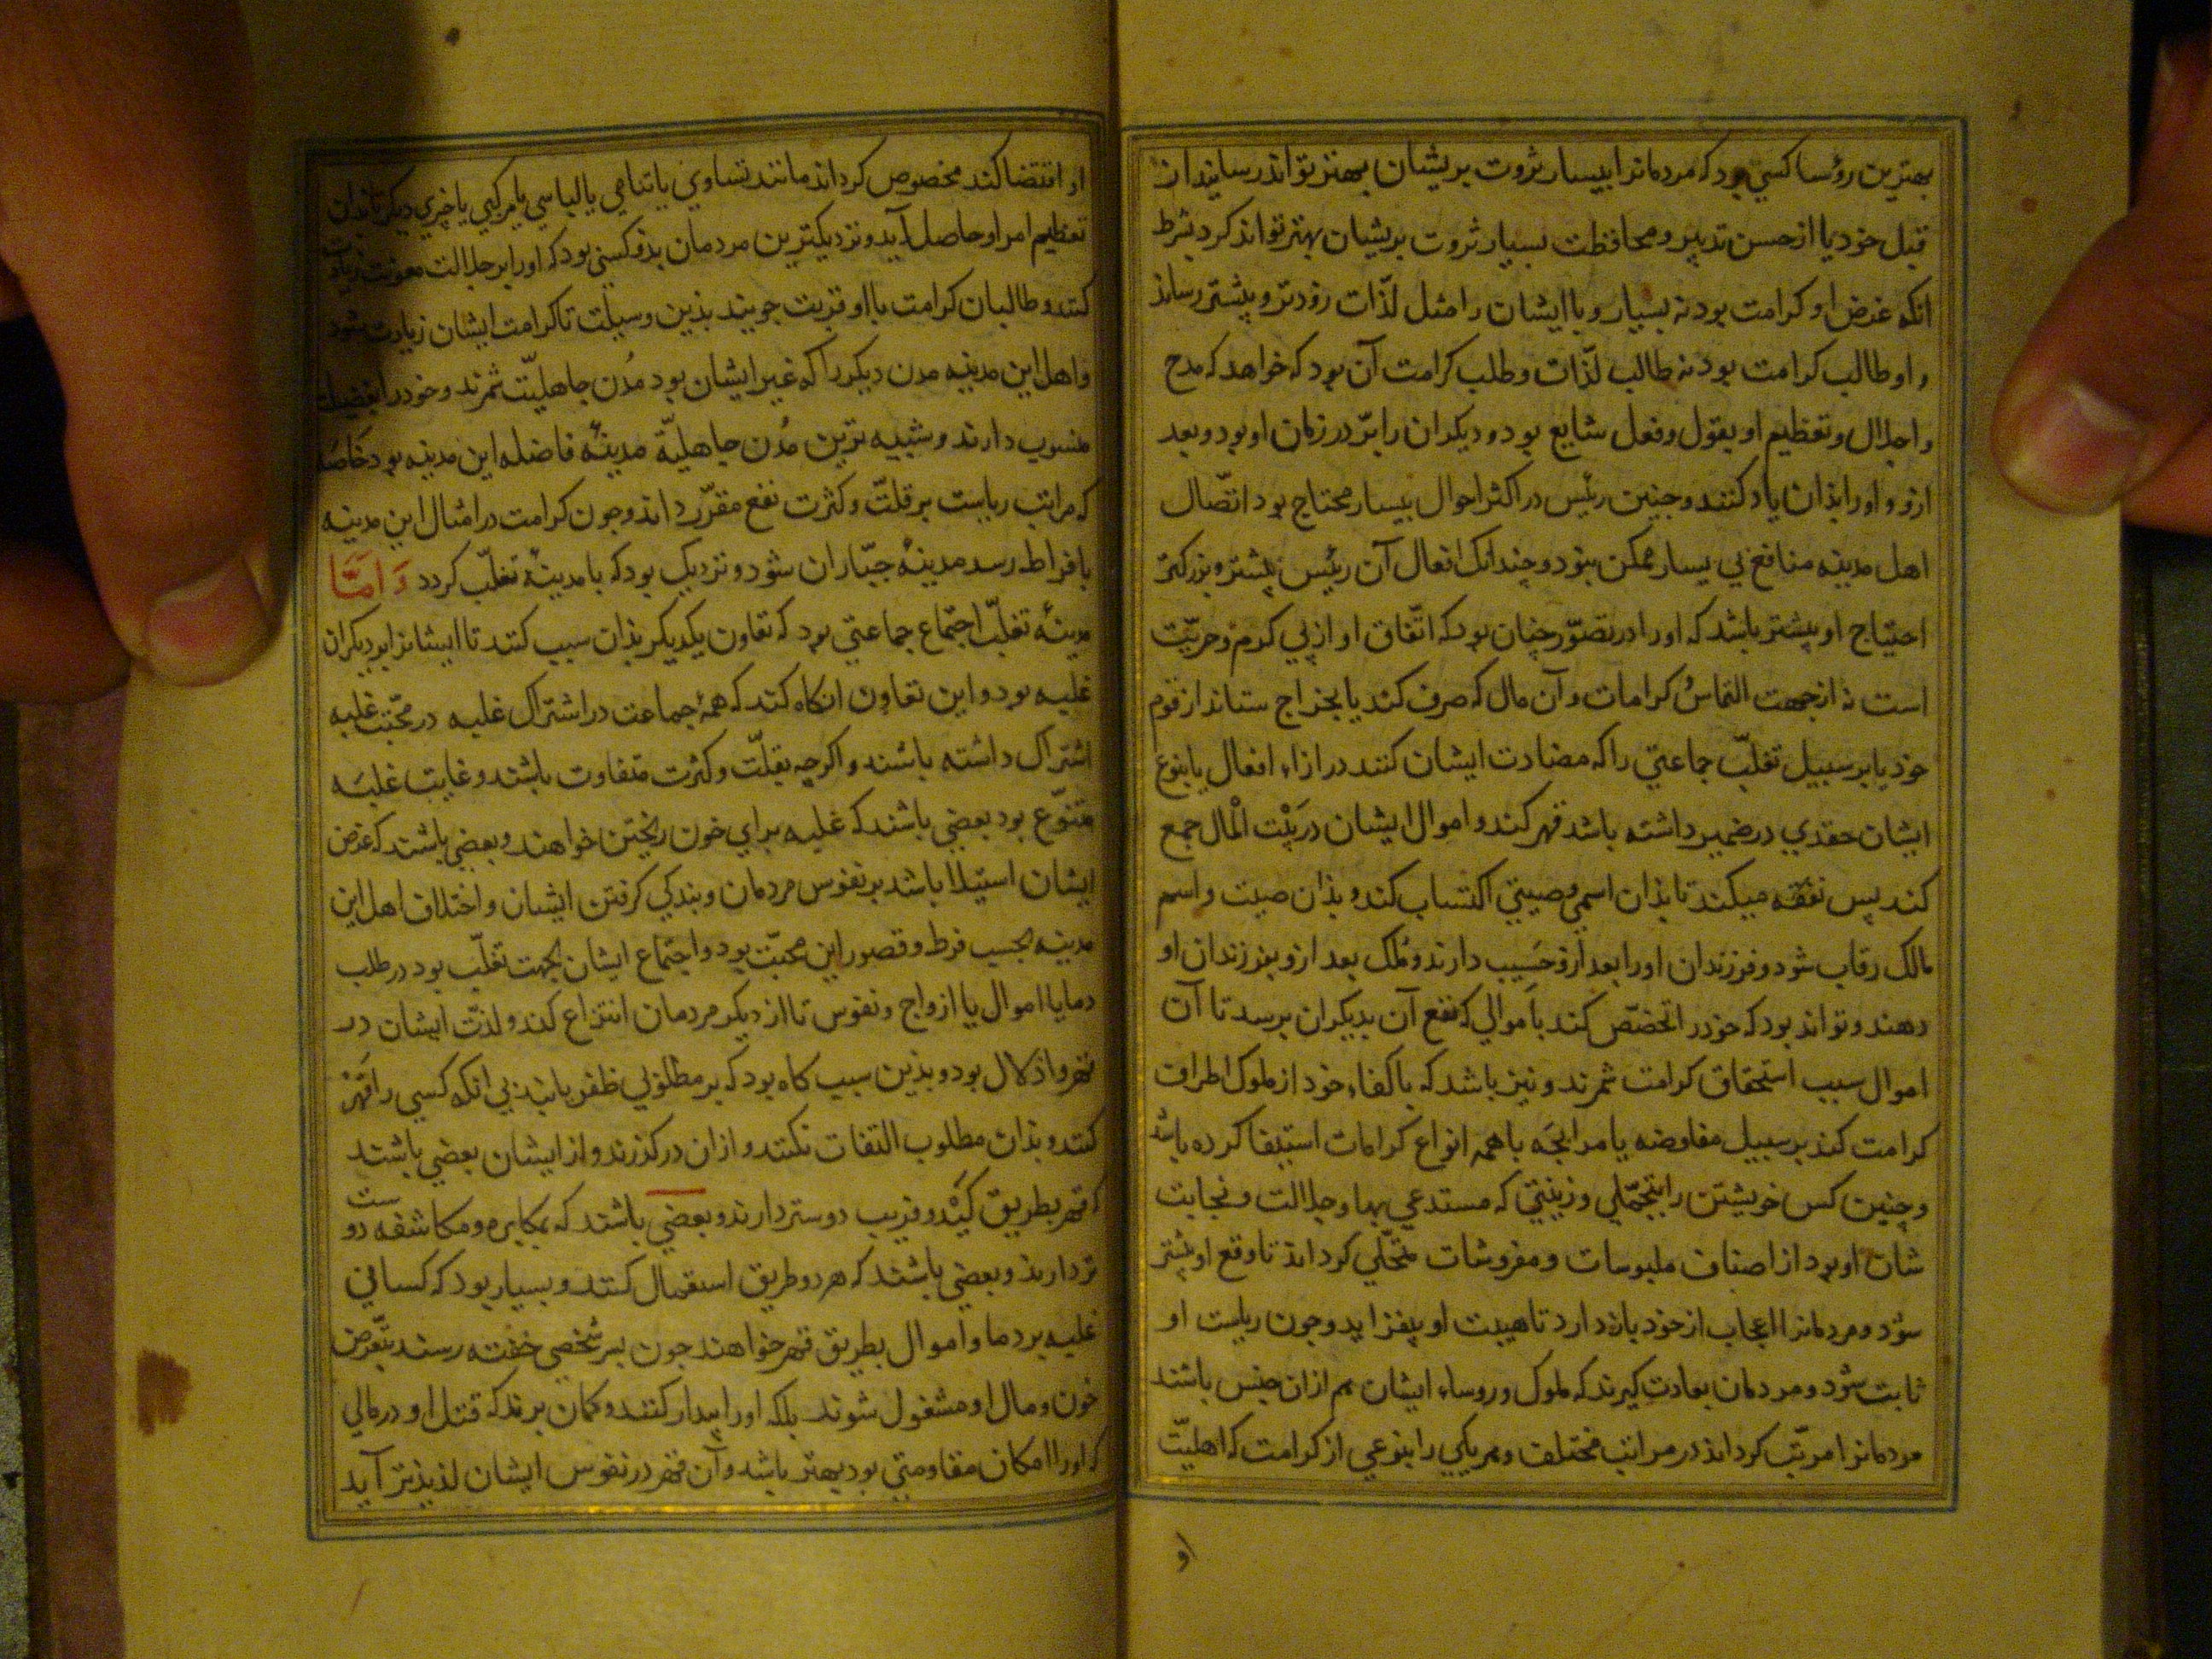 بهترین رؤسا کسی بود که مردمانرا بیسار ثروت بریشان بهتر تواند رسانید از
قبل خود یا از حسن تدبیر و محافظت بسیار ثروت بریشان بهتر تواند کرد بشرط
انکه غرض او کرامت بود نه بسیار و یا ایشان را مثل لذّات زودتر و بیشتر رساند
و او طالب کرامت بود نه طالب لذّات و طلب کرامت آن بود که خواهد که مدح
و اجلال و تعظیم او بقول و فعل شایع بود و دیکران را برّ در زمان او بود و بعد
ازو و اورا بذان یاد کنند و جنین رئیس در اکثر احوال بیسار محتاج بود اتصّال
اهل مدینه منافع بی یسار ممکن بنود و چندانک افعال آن رئیس بیشتر و بزرکتر
احتیاج او بیشتر باشد که اورا در تصوّر چنان بود که اتّفاق او از پی کرم و حریّت
است نه از جهت التماسُ کرامات و آن مال که صرف کند یا بخراج ستاند از قوم
خود یا بر سبیل تغلبّ جماعتی را که مضادت ایشان کنند در ازاء افعال یا بنوع
ایشان حقدی در ضمیر داشته باشد قهر کند و اموال ایشان در بَیْت الْمال جمع
کند پس نفقه میکند تا بذان اسمی و صیتی اکتساب کند و بذان صیت و اسم
مالک رقاب شود و فرزندان اورا بعد ازو حَسیب دارند و مُلک بعد ازو بفرزندان او
دهند و تواند بود که خودرا تخصّص کند باَموالی که نفع آن بدیکران برسد تا آن
اموال سبب استحقاق کرامت شمرند و نیز باشد که با کفاء خود از ملوک اطراف
کرامت کند بر سبیل مفاوضه یا مرابحَه با همه انواع کرامات استیفا کرده باشد
و چنین کس خویشتن را بتجمّلی و زینتی که مستدعی بها و جلالت و نجابت
شان او بود از اصناف ملبوسات و مفروشات متحلّی کرداند تا وقع او بیشتر
شود و مردمانرا اعجاب از خود باز دارد تا هیبت او بیفزاید و جون ریاست او
ثابت شود و مردمان بعادت کیرند که ملوک و روساء ایشان هم ازان جنس باشند
مردمانرا مرتّب کرداند در مراتب مختلف و هر یکی را بنوعی از کرامت که اهلیّت
او
او اقتضا کند مخصوص کرداند مانند تساوی یا تنامی یا لباسی یا مرکبی یا چیزی دیکر تا بدان
تعظیم امر او حاصل آید و نزدیکترین مردمان بذو کسی بود که اورا بر جلالت معونت زیادت
کنند و طالبان کرامت با او قربت جویند بذین وسیلت تا کرامت ایشان زیادت شود
و اهل این مدینه مدن دیکر را که غیر ایشان بود مُدن جاهلیّت شمرند و خودرا بفضیلت
منسوب دارند و شبیه ترین مُدن جاهلیّة مدینهٔ فاضله این مدینه بود خاصَّه
که مراتب ریاست بر قلّت و کثرت نفع مقرّر داند و جون کرامت در امثال این مدینه
بافراط رسد مدینهٔ جبّاران شود و نزدیک بود که با مدینهٔ تغلّب کردد وَ امّا
مدینهٔ تغلّب اجتماع جماعتی بود که تعاون یکدیکر بذان سبب کنند تا ایشانرا بر دیکران
غلبه بود و این تعاون انکاه کنند که همهٔ جماعت در اشتراک غلبه در محبّت غلبه
اشتراک داشته باشند و اکرچه بقلّت و کثرت متفاوت باشند و غایت غلبَه
متنوّع بود بعضی باشند که غلبه برای خون ریختن خواهند و بعضی باشند که غرض
ایشان استیلا باشد بر نفوس مردمان و بندکی کرفتن ایشان و اختلاف اهل این
مدینه بحسب فرط و قصور این محبّت بود و اجتماع ایشان بجهت تغلّب بود در طلب
دما یا اموال یا ازواج و نفوس تا از دیکر مردمان انتزاع کند و لذّت ایشان در
قهر و اذلال بود و بذین سبب کاه بود که بر مطلوبی ظفر یابند بی انکه کسی را قهر
کنند و بذان مطلوب التفات نکنند و ازان در کذرند و از ایشان بعضی باشند
که قهر بطریق کَیْد و فریب دوستر دارند و بعضی باشند که بمکابره و مکاشفه دوست
تر دارند و بعضی باشند که هر دو طریق استعمال کنند و بسیار بود که کسانی
غلبه بر دما و اموال بطریق قهر خواهند جون بسر شخصی خفته رسند بتعّرض
خون و مال او مشغول شوند بلکه اورا بیدار کنند و کمان برند که قتل او در حالی
که اورا امکان مقاومتی بود بهتر باشد و آن قهر در نفوس ایشان لذیذتر آید